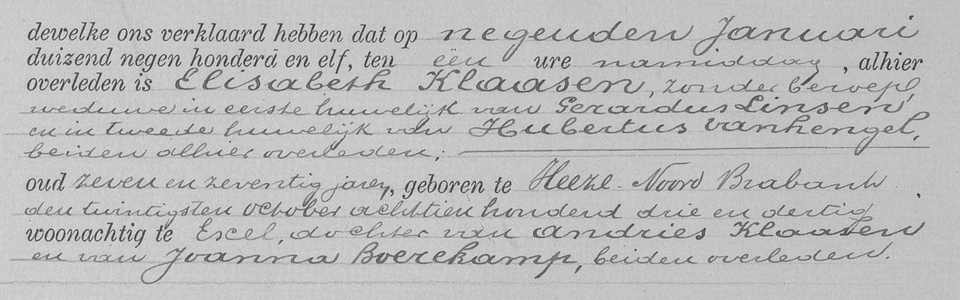 dewelke ons verklaard hebben dat op negenden Januari
duizend negen honderd en elf, ten één ure namiddag, alhier
overleden is Elisabeth Klaasen, zonder beroep,
weduwe in eerste huwelijk van Gerardus Linsen
en in tweede huwelijk van Hubertus Vanhengel,
beiden alhier overleden;
oud zeven en zeventig jaren, geboren te Heeze-Noord Brabant
den twintigsten october achttien honderd drie en dertig
woonachtig te Excel, dochter van Andries Klaasen
en van Joanna Boerekamp, beiden overleden.